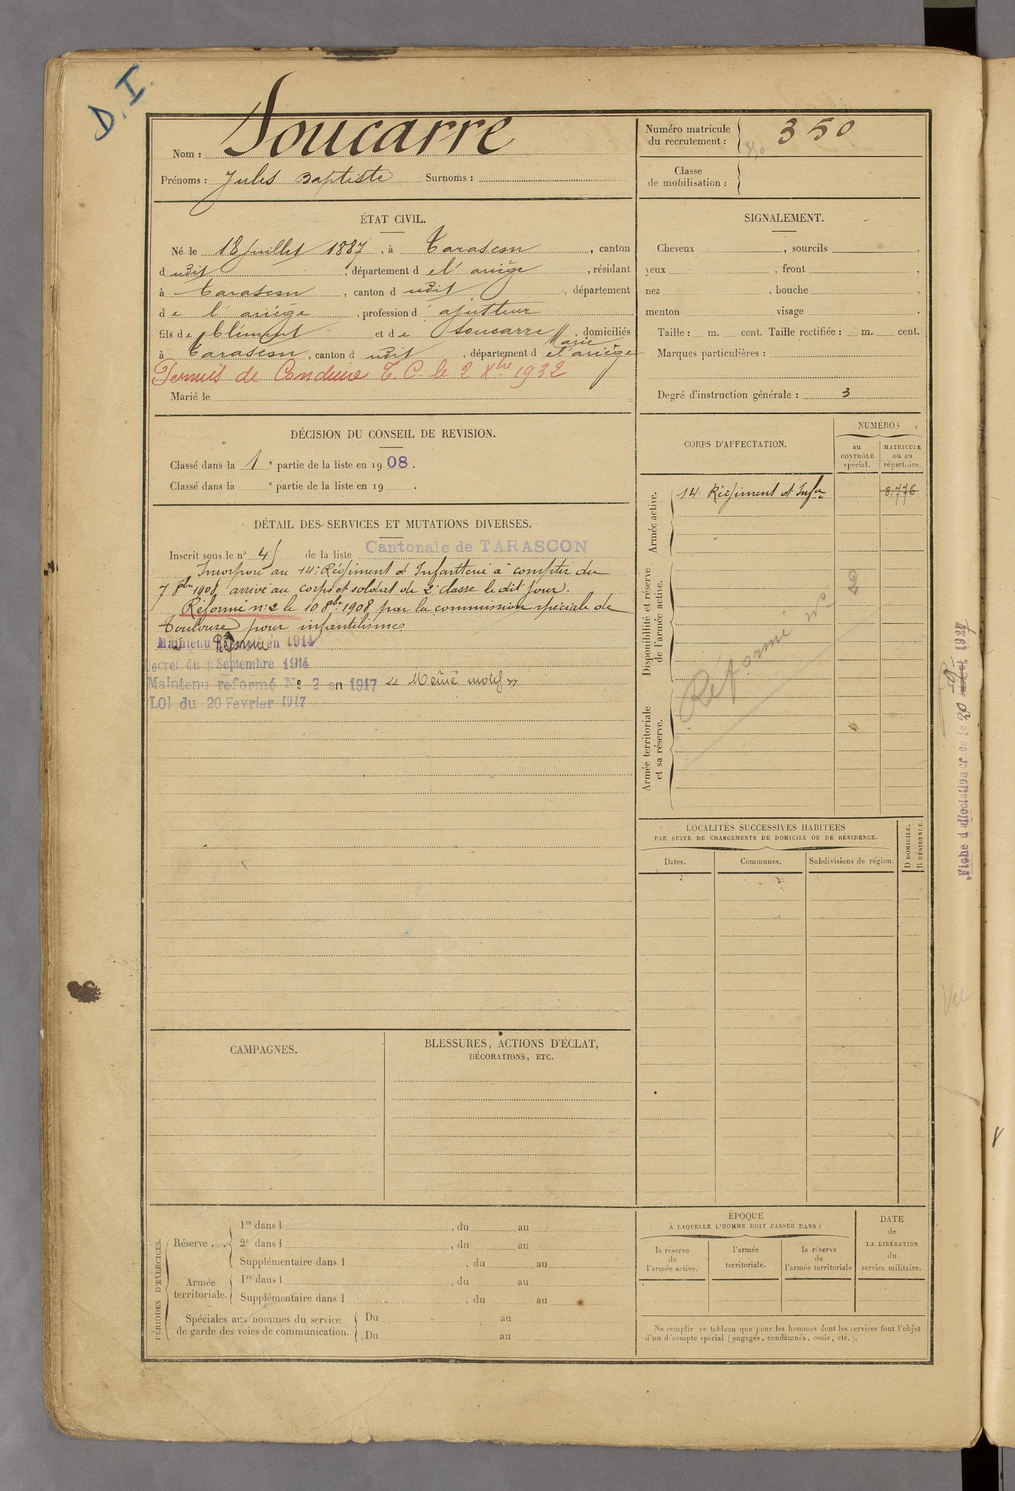 D.I.
Nom : Soucarre
Prénoms : Jules Baptiste Surnoms :
Numéro matricule du recrutement : 350
350
Classe de mobilisation :
ÉTAT CIVIL.
Né le 18 Juillet 1887, à Tarascon, canton
d udit, département d e l'ariège, résidant
à Tarascon, canton d udit, département
d e l'ariège, profession d' ajusteur
fils d e Clément et d e Soucarre Marie, domiciliés
à Tarascon, canton d udit, département d e l'ariège
Permis de Conduire T.C. le 2 Xbre 1932
Marié le
SIGNALEMENT.
Cheveux , sourcils .
yeux , front .
nez , bouche
menton visage .
Taille : m. cent. Taille rectifiée : m. cent.
Marques particulières :
Degré d'instruction générale : 3
DÉCISION DU CONSEIL DE REVISION.
Classé dans la 1e partie de la liste en 1908.
Classé dans la e partie de la liste en 19 .
DÉTAIL DES SERVICES ET MUTATIONS DIVERSES.
Inscrit sous le n° 45 de la liste Cantonale de TARASCON
Incorporé au 14e Régiment d'Infanterie à compter du
7 8bre 1908, arrivé au corps et soldat de 2e classe le dit jour.
Réformé n° 2 le 10 8bre 1908 par la commission spéciale de
Toulouse pour infantilisme
Maintenu Réformé en 1914
Décret du 9 Septembre 1914
Maintenu reformé N° 2 en 1917 « Même motif »
LOI du 20 Fevrier 1917
CORPS D'AFFECTATION.
NUMÉROS
au CONTRÔLE spécial.
MATRICULE ou au répertoire.
Armée active.
14 Régiment d'Infie 8.776
Disponibilité et réserve de l'armée active.
Réformé n° 2
Armée territoriale et sa réserve.
LOCALITÉS SUCCESSIVES HABITÉES
PAR SUITE DE CHANGEMENTS DE DOMICILE OU DE RÉSIDENCE.
Dates. Communes. Subdivisions de région. D DOMICILE. R RÉSIDENCE.
CAMPAGNES.
BLESSURES, ACTIONS D'ÉCLAT,
DÉCORATIONS, ETC.
PÉRIODES D'EXERCICES.
Réserve
1re dans l , du au
2e dans l , du au
Supplémentaire dans l , du au
Armée territoriale.
1re dans l , du au
Supplémentaire dans l , du au
Spéciales aux hommes du service de garde des voies de communication.
Du au
Du au
ÉPOQUE
À LAQUELLE L'HOMME DOIT PASSER DANS :
la réserve de l'armée active.
l'armée territoriale.
la réserve de l'armée territoriale
DATE de LA LIBÉRATION du service militaire.
Ne remplir ce tableau que pour les hommes dont les services font l'objet
d'un décompte spécial (engagés, condamnés, omis, etc.).
Fiche d'affectation créée le 20 1927